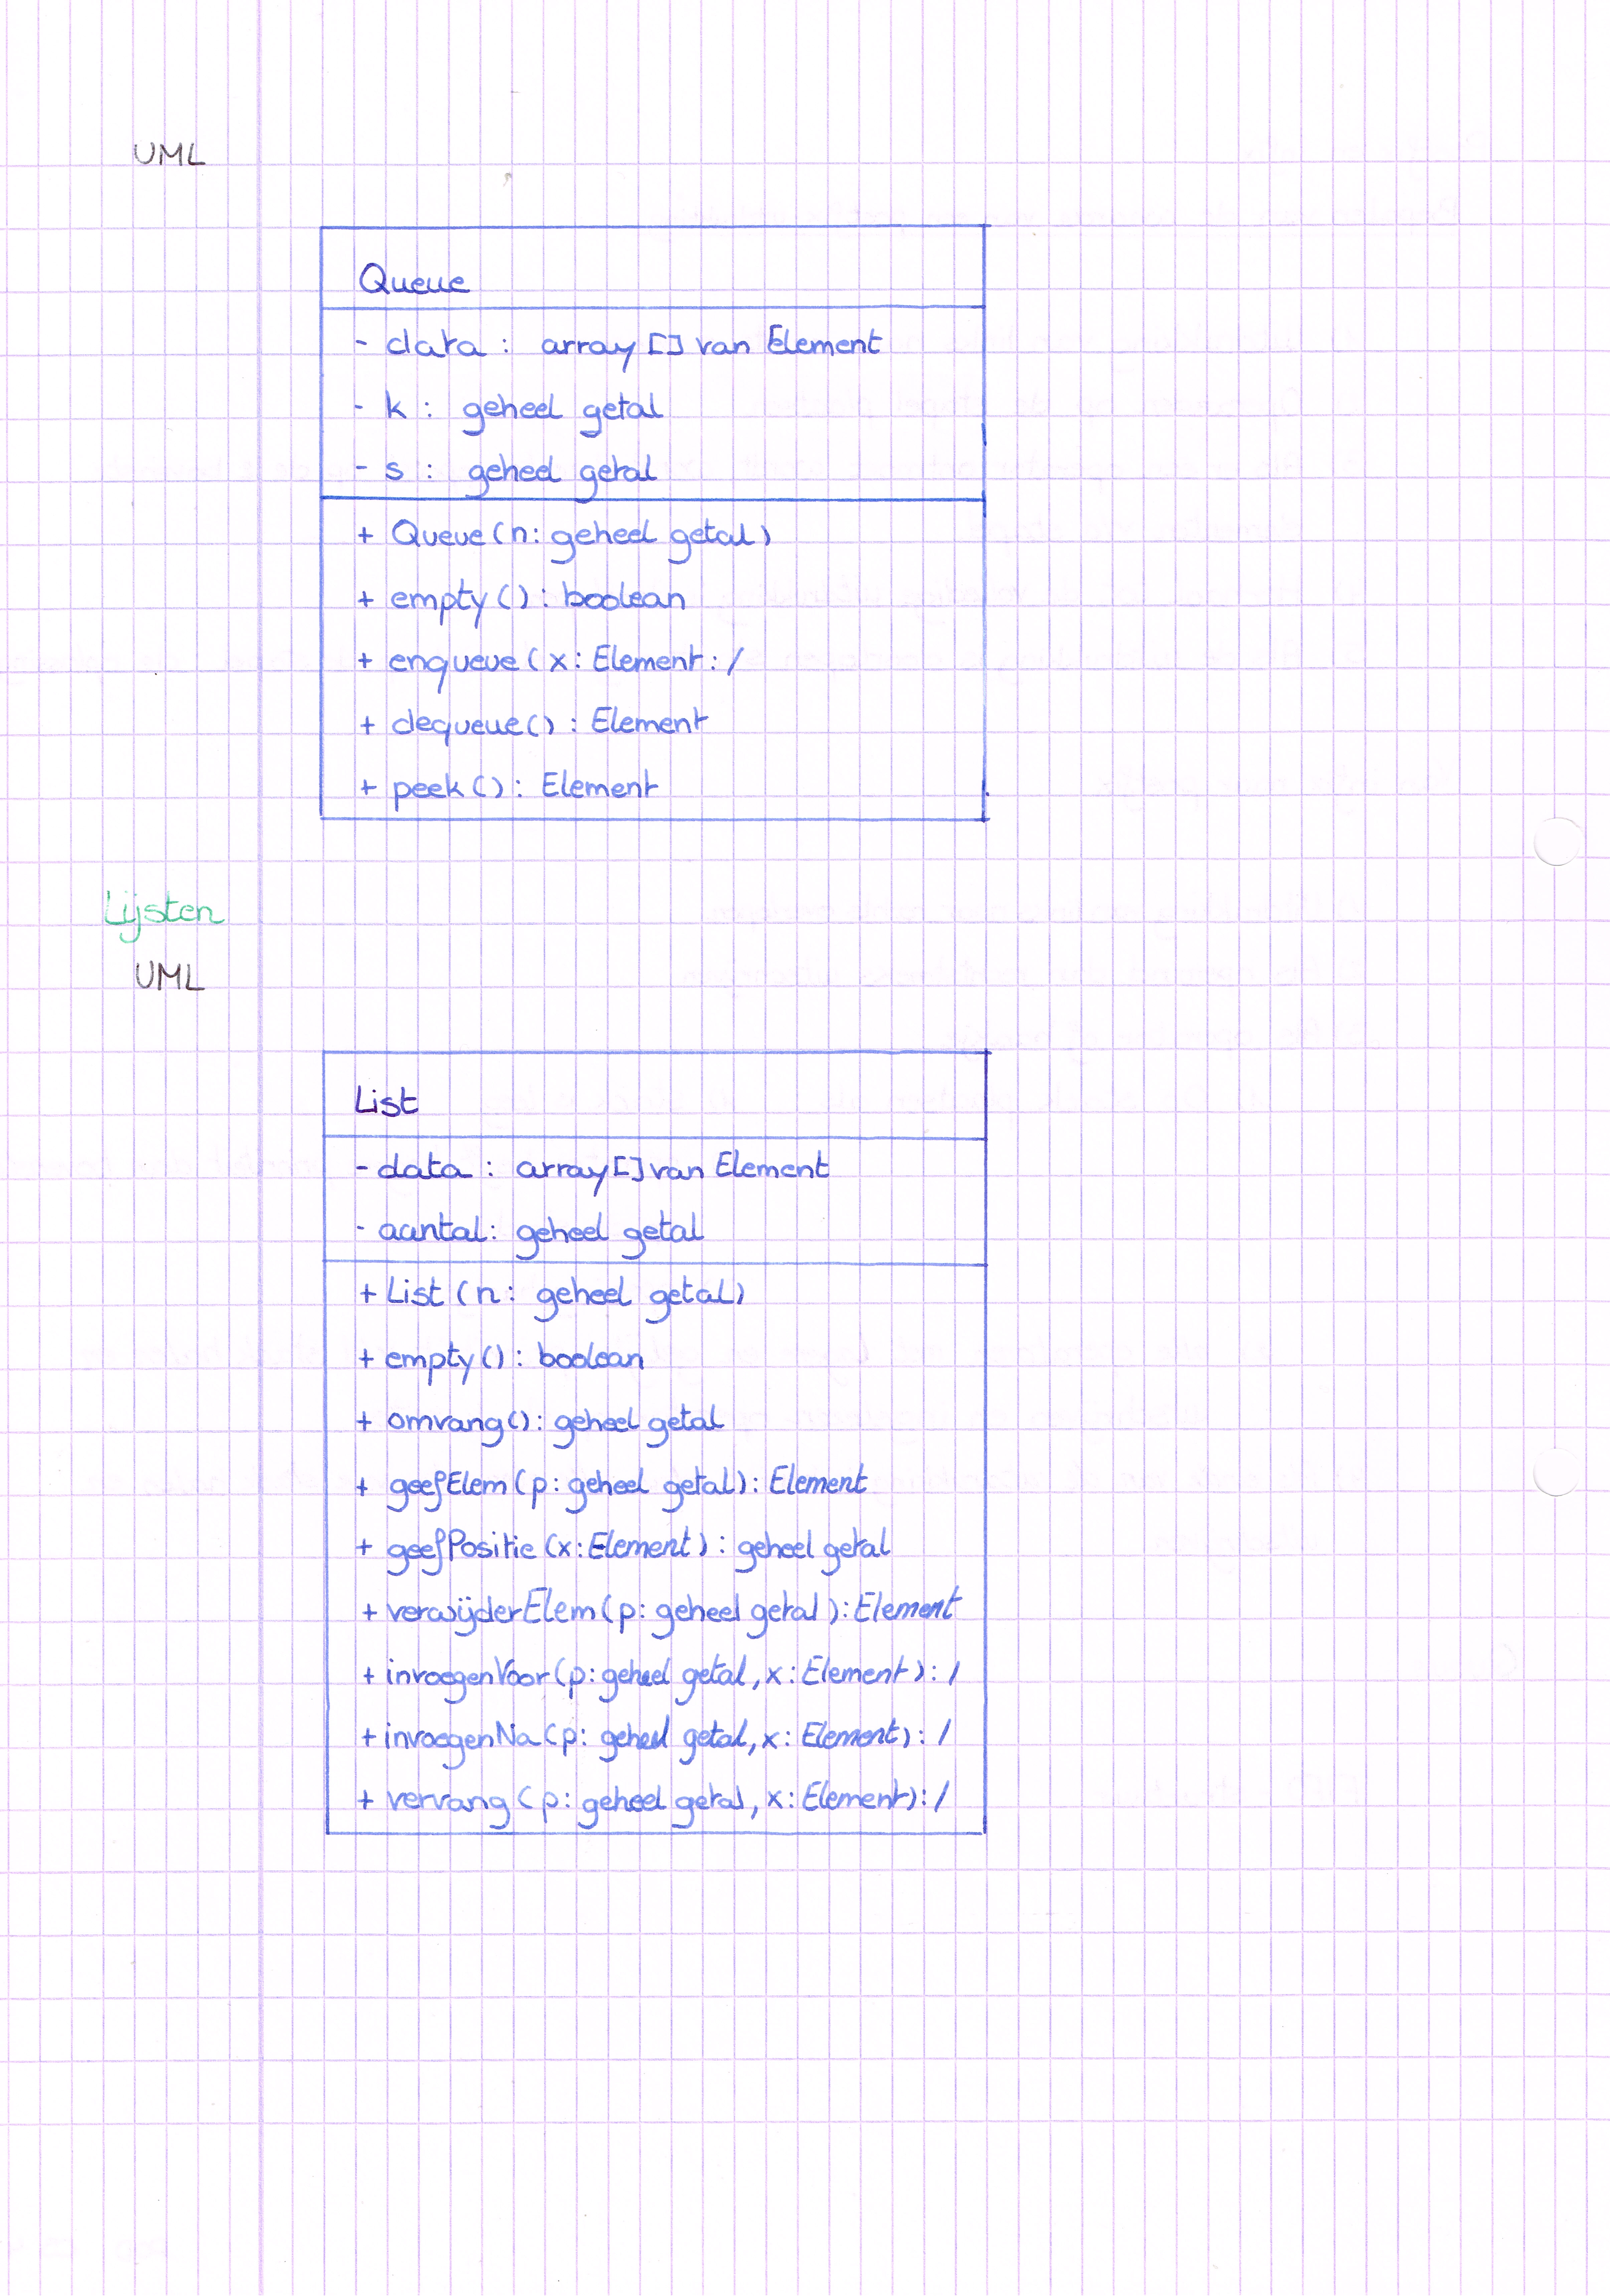 UML
Queue
- data : array [] van Element
- k : geheel getal
- s : geheel getal
+ Queue (n: geheel getal)
+ empty () : boolean
+ enqueue ( x : Element : /
+ dequeue () : Element
+ peek () : Element
Lijsten
UML
List
- data : array [] van Element
- aantal : geheel getal
+ List (n : geheel getal)
+ empty () : boolean
+ omvang () : geheel getal
+ geefElem (p : geheel getal) : Element
+ geefPositie (x : Element) : geheel getal
+ verwijderElem (p : geheel getal) : Element
+ invoegenVoor (p : geheel getal, x : Element) : /
+ invoegenNa (p : geheel getal, x : Element) : /
+ vervang (p : geheel getal, x : Element) : /